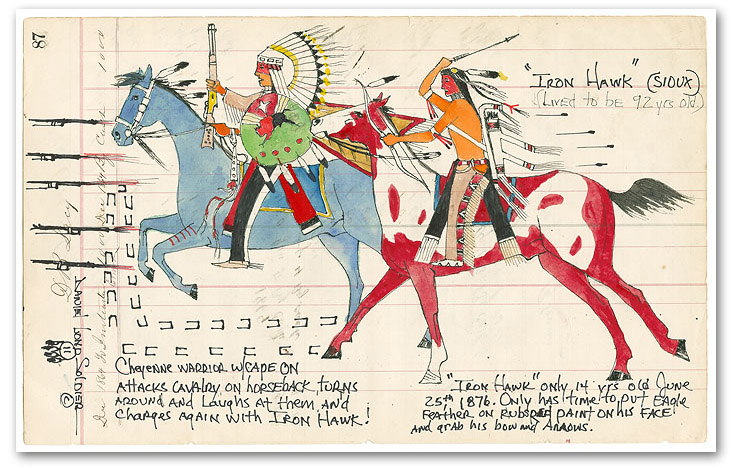 87
1000
"IRON HAWK" (SIOUX)
(Lived to be 92 yrs old.)
DANIEL LONG SOLDIER
©
Cheyenne WARRIOR W/CAPE ON
ATTACKS CAVALRY, ON HORSEBACK, TURNS
AROUND AND LAUGHS AT THEM, AND
CHARGES AGAIN WITH IRON HAWK!
"IRON HAWK" only 14 yrs old June
25th 1876. Only has time to put EAGLE
FEATHER ON RUBS PAINT ON his FACE!
AND gRAb his bow AND ARROWS.